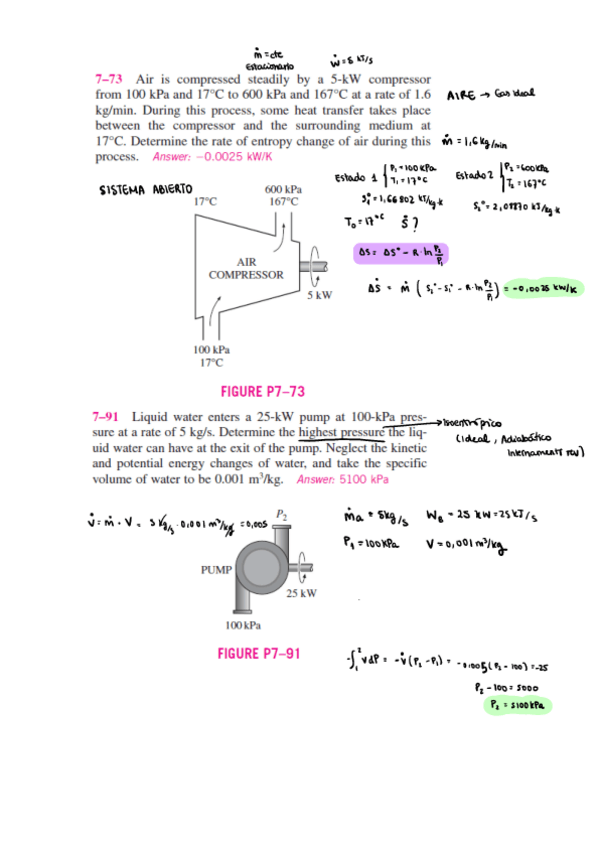 ṁ = cte
Estacionario
Ẇ = 5 kJ/s
7–73 Air is compressed steadily by a 5-kW compressor
from 100 kPa and 17°C to 600 kPa and 167°C at a rate of 1.6
kg/min. During this process, some heat transfer takes place
between the compressor and the surrounding medium at
17°C. Determine the rate of entropy change of air during this
process. Answer: −0.0025 kW/K
AIRE → Gas ideal
ṁ = 1,6 kg/min
Estado 1 { P₁ = 100 kPa
T₁ = 17°C
S₁° = 1,66802 kJ/kg·K
Estado 2 { P₂ = 600 kPa
T₂ = 167°C
S₂° = 2,08870 kJ/kg·K
T₀ = 17°C Ṡ?
SISTEMA ABIERTO
17°C
600 kPa
167°C
AIR
COMPRESSOR
5 kW
100 kPa
17°C
ΔS = ΔS° − R·ln P₂/P₁
ΔṠ = ṁ (S₂° − S₁° − R·ln P₂/P₁) = −0,0025 kW/K
FIGURE P7–73
7–91 Liquid water enters a 25-kW pump at 100-kPa pres-
sure at a rate of 5 kg/s. Determine the highest pressure the liq-
uid water can have at the exit of the pump. Neglect the kinetic
and potential energy changes of water, and take the specific
volume of water to be 0.001 m³/kg. Answer: 5100 kPa
→ Isoentrópico
(ideal, Adiabático
Internamente rev)
V̇ = ṁ · V = 5 kg/s · 0,001 m³/kg = 0,005
ṁa = 5 kg/s W_B = 25 kW = 25 kJ/s
P₁ = 100 kPa V = 0,001 m³/kg
P₂
PUMP
25 kW
100 kPa
FIGURE P7–91
−∫₁² vdP = −V̇ (P₂ − P₁) = −0,005 (P₂ − 100) = −25
P₂ − 100 = 5000
P₂ = 5100 kPa